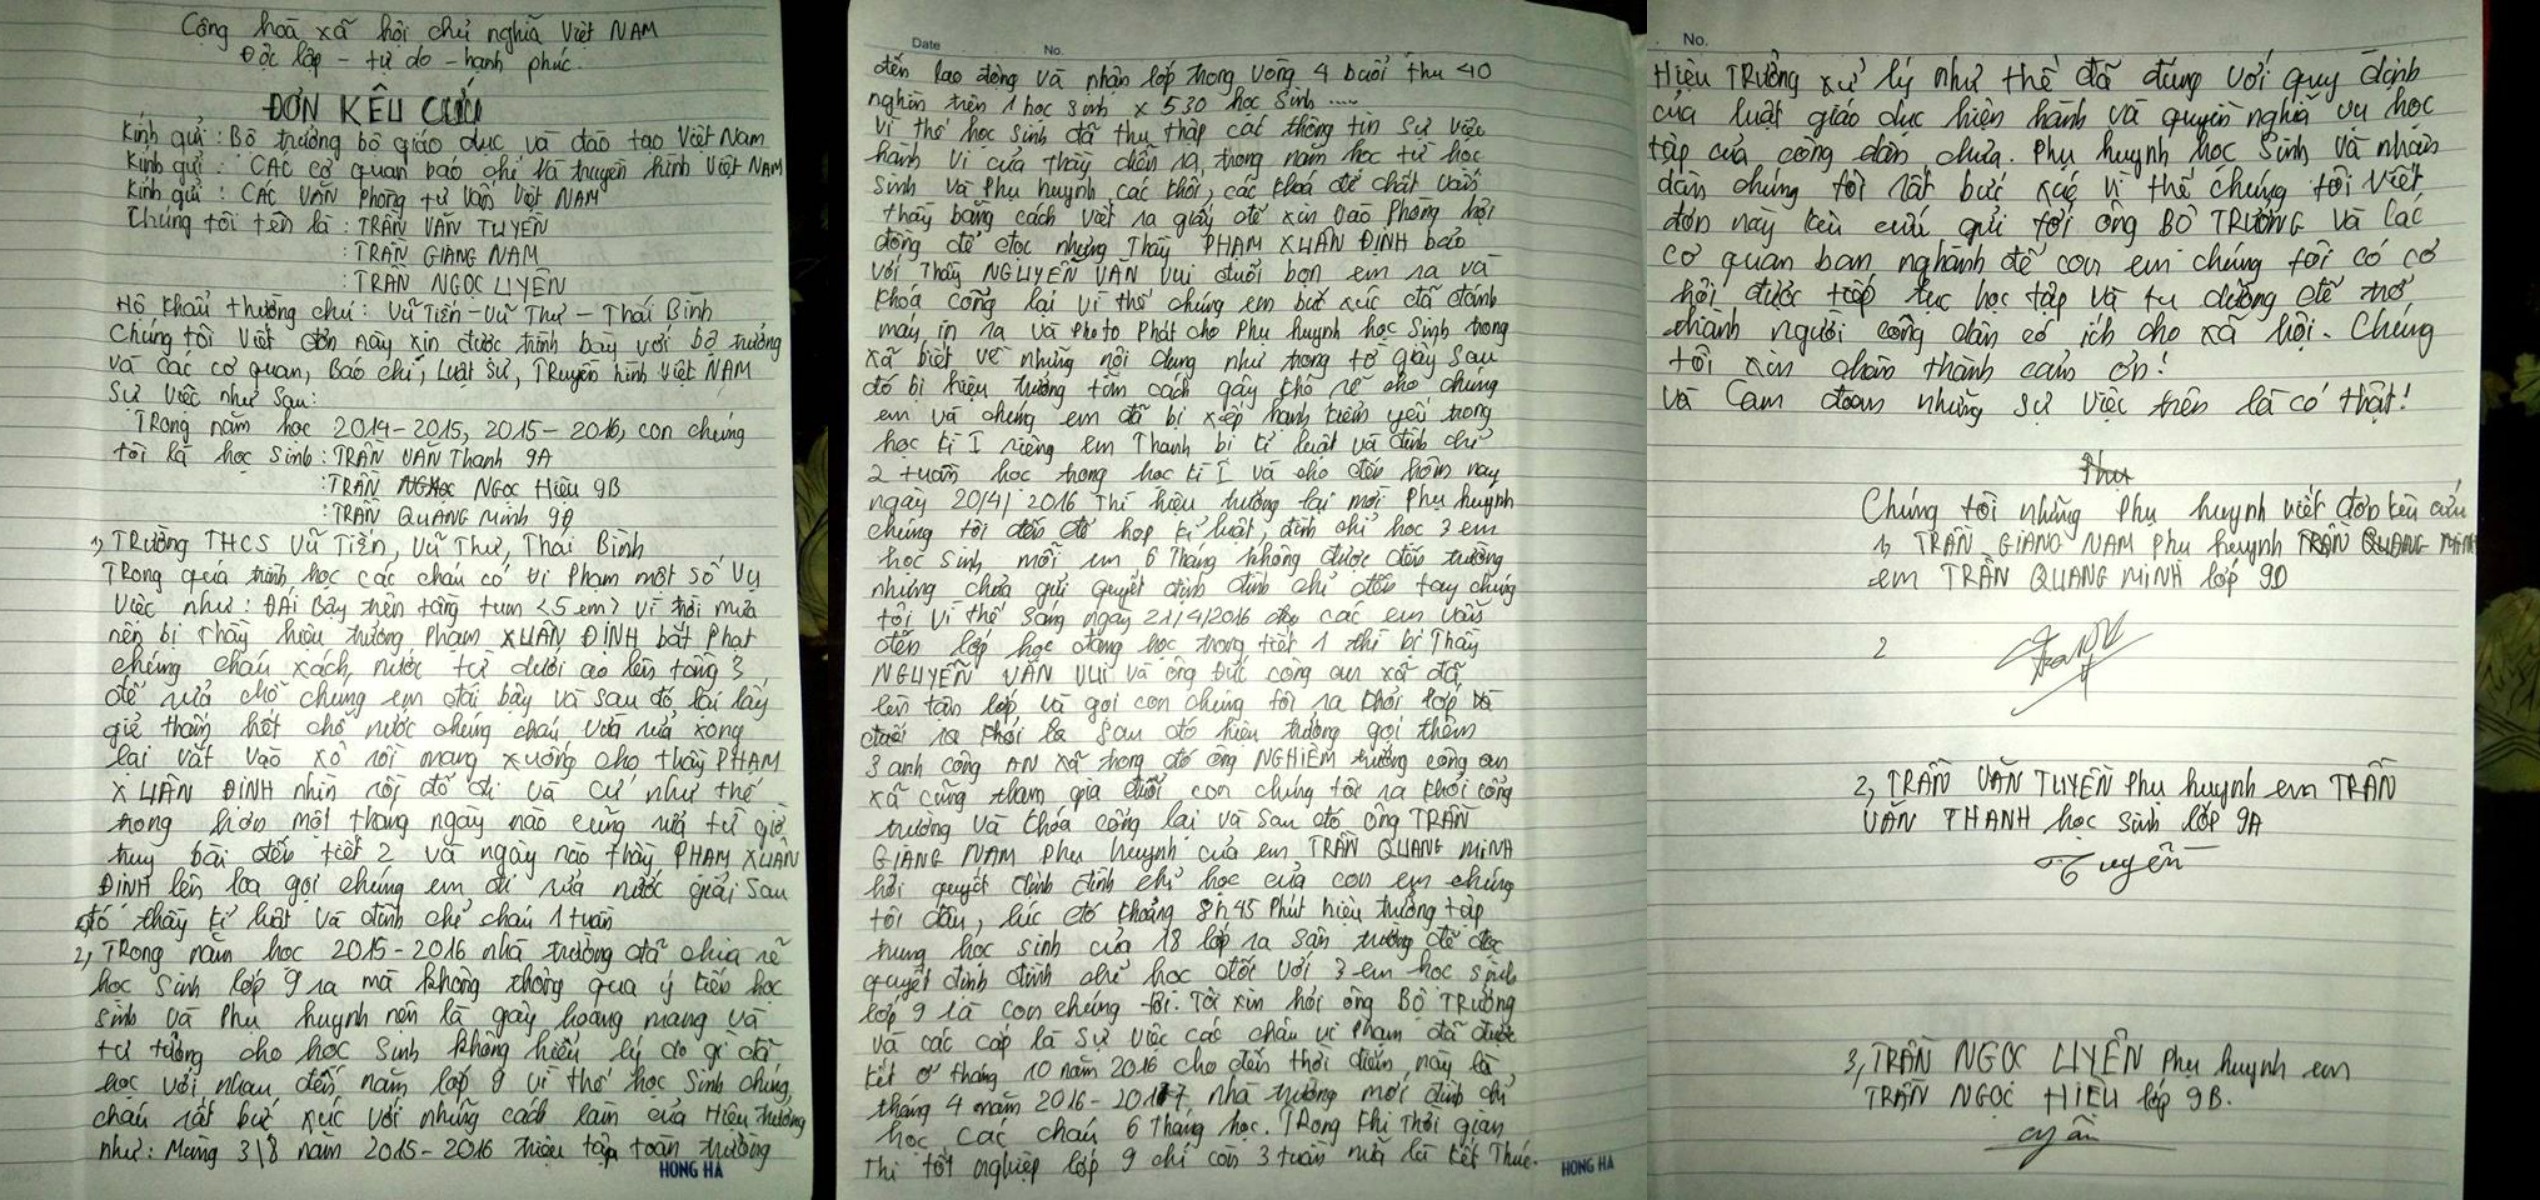 Cộng hoà xã hội chủ nghĩa Việt NAM
Độc lập - tự do - hạnh phúc.
ĐƠN KÊU CỨU
Kính gửi : Bộ trưởng bộ giáo dục và đào tạo Việt Nam
Kính gửi : CÁC cơ quan báo chí và truyền hình Việt NAM
Kính gửi : CÁC VĂN Phòng tư vấn Việt NAM
Chúng tôi tên là : TRẦN VĂN TUYỀN
: TRẦN GIANG NAM
: TRẦN NGỌC LUYÊN
Hộ khẩu thường chú : Vũ Tiến - Vũ Thư - Thái Bình
Chúng tôi Viết đơn này xin được trình bày với bộ trưởng
và các cơ quan, Báo chí, Luật Sư, TRuyền hình Việt NAM
Sự Việc như sau:
TRong năm học 2014-2015, 2015-2016, con chúng
tôi là học sinh : TRẦN VĂN Thanh 9A
: TRẦN Ngọc Hiệu 9B
: TRẦN QUANG Minh 9D
1, TRường THCS Vũ Tiến, Vũ Thư, Thái Bình
TRong quá trình học các cháu có vi Phạm một số Vụ
Việc như : ĐÁi Bậy trên tầng tum <5 em> Vì trời mưa
nên bị Thầy hiệu trưởng Phạm XUÂN ĐỊNH bắt Phạt
chúng cháu xách nước từ dưới ao lên tầng 3
để rửa chỗ chúng em đái bậy và sau đó lại lấy
giẻ thấm hết chỗ nước chúng cháu vừa rửa xong
lại vắt vào xô rồi mang xuống cho thầy PHẠM
XUÂN ĐỊNH nhìn rồi đổ đi và cứ như thế
trong hơn một tháng ngày nào cũng rửa từ giờ
truy bài đến tiết 2 và ngày nào thầy PHẠM XUÂN
ĐỊNH lên loa gọi chúng em đi rửa nước giải sau
đó thầy kỉ luật và đình chỉ cháu 1 tuần
2, TRong năm học 2015-2016 nhà trường đã chia rẽ
học sinh lớp 9 ra mà không thông qua ý kiến học
sinh và Phụ huynh nên là gây hoang mang và
tư tưởng cho học Sinh không hiểu lý do gì đã
học với nhau đến năm lớp 9 vì thế học Sinh chúng
cháu rất bức xúc với những cách làm của Hiệu trưởng
như : Mùng 3/8 năm 2015-2016 triệu tập toàn trường
HONG HA
Date No.
đến lao động và nhận lớp trong vòng 4 buổi thu 40
nghìn trên 1 học sinh x 530 học Sinh ....
Vì thế học sinh đã thu thập các thông tin sự việc
hành vi của thầy diễn ra trong năm học từ học
sinh và Phụ huynh các khối, các khoá để chất vấn
thầy bằng cách viết ra giấy để xin vào Phòng hội
đồng để đọc nhưng Thầy PHẠM XUÂN ĐỊNH bảo
với Thầy NGUYỄN VĂN Vui đuổi bọn em ra và
khóa cổng lại vì thế chúng em bức xúc đã đánh
máy in ra và Photo Phát cho Phụ huynh học Sinh trong
xã biết về những nội dung như trong tờ giấy sau
đó bị hiệu trưởng tìm cách gây khó rễ cho chúng
em và chúng em đã bị xếp hạnh kiểm yếu trong
học kì I riêng em Thanh bị kỉ luật và đình chỉ
2 tuần học trong học kì I và cho đến hôm nay
ngày 20/4/2016 Thì hiệu trưởng lại mời Phụ huynh
chúng tôi đến để họp kỉ luật, đình chỉ học 3 em
học sinh, mỗi em 6 Tháng không được đến trường
nhưng chưa gửi quyết định đình chỉ đến tay chúng
tôi Vì thế sáng ngày 21/4/2016 các em vẫn
đến lớp học đang học trong tiết 1 thì bị Thầy
NGUYỄN VĂN VUI và ông Đức công an xã đã
lên tận lớp và gọi con chúng tôi ra khỏi lớp và
đuổi ra khỏi lớp sau đó hiệu trưởng gọi thêm
3 anh công AN xã trong đó ông NGHIÊM trưởng công an
xã cũng tham gia đuổi con chúng tôi ra khỏi cổng
trường và khóa cổng lại và sau đó ông TRẦN
GIANG NAM phụ huynh của em TRẦN QUANG MINH
hỏi quyết định đình chỉ học của con em chúng
tôi đâu, lúc đó khoảng 8h45 Phút hiệu trưởng tập
trung học sinh của 18 lớp ra sân trường để đọc
quyết định đình chỉ học đối với 3 em học sinh
lớp 9 là con chúng tôi. Tôi xin hỏi ông BỘ TRưởng
và các cấp là sự việc các cháu vi phạm đã được
kết ở tháng 10 năm 2016 cho đến thời điểm này là
tháng 4 năm 2016-2017 nhà trường mới đình chỉ
học các cháu 6 tháng học. TRong khi Thời gian
Thi tốt nghiệp lớp 9 chỉ còn 3 tuần nữa là kết Thúc.
HONG HA
No.
Hiệu TRưởng xử lý như thế đã đúng với quy định
của luật giáo dục hiện hành và quyền nghĩa vụ học
tập của công dân chưa. Phụ huynh học Sinh và nhân
dân chúng tôi rất bức xúc vì thế chúng tôi viết
đơn này kêu cứu gửi tới ông BỘ TRƯỞNG và các
cơ quan ban nghành để con em chúng tôi có cơ
hội được tiếp tục học tập và tu dưỡng để trở
thành người công dân có ích cho xã hội. Chúng
tôi xin chân thành cảm ơn!
Và Cam đoan những sự việc trên là có thật!
Phụ
Chúng tôi những Phụ huynh viết đơn kêu cứu
1, TRẦN GIANG NAM Phụ huynh TRẦN QUANG MINH
em TRẦN QUANG MINH lớp 9D
2
2, TRẦN VĂN TUYỀN Phụ huynh em TRẦN
VĂN THANH học sinh lớp 9A
Tuyền
3, TRẦN NGỌC LUYÊN Phụ huynh em
TRẦN NGỌC HIỆU lớp 9B.